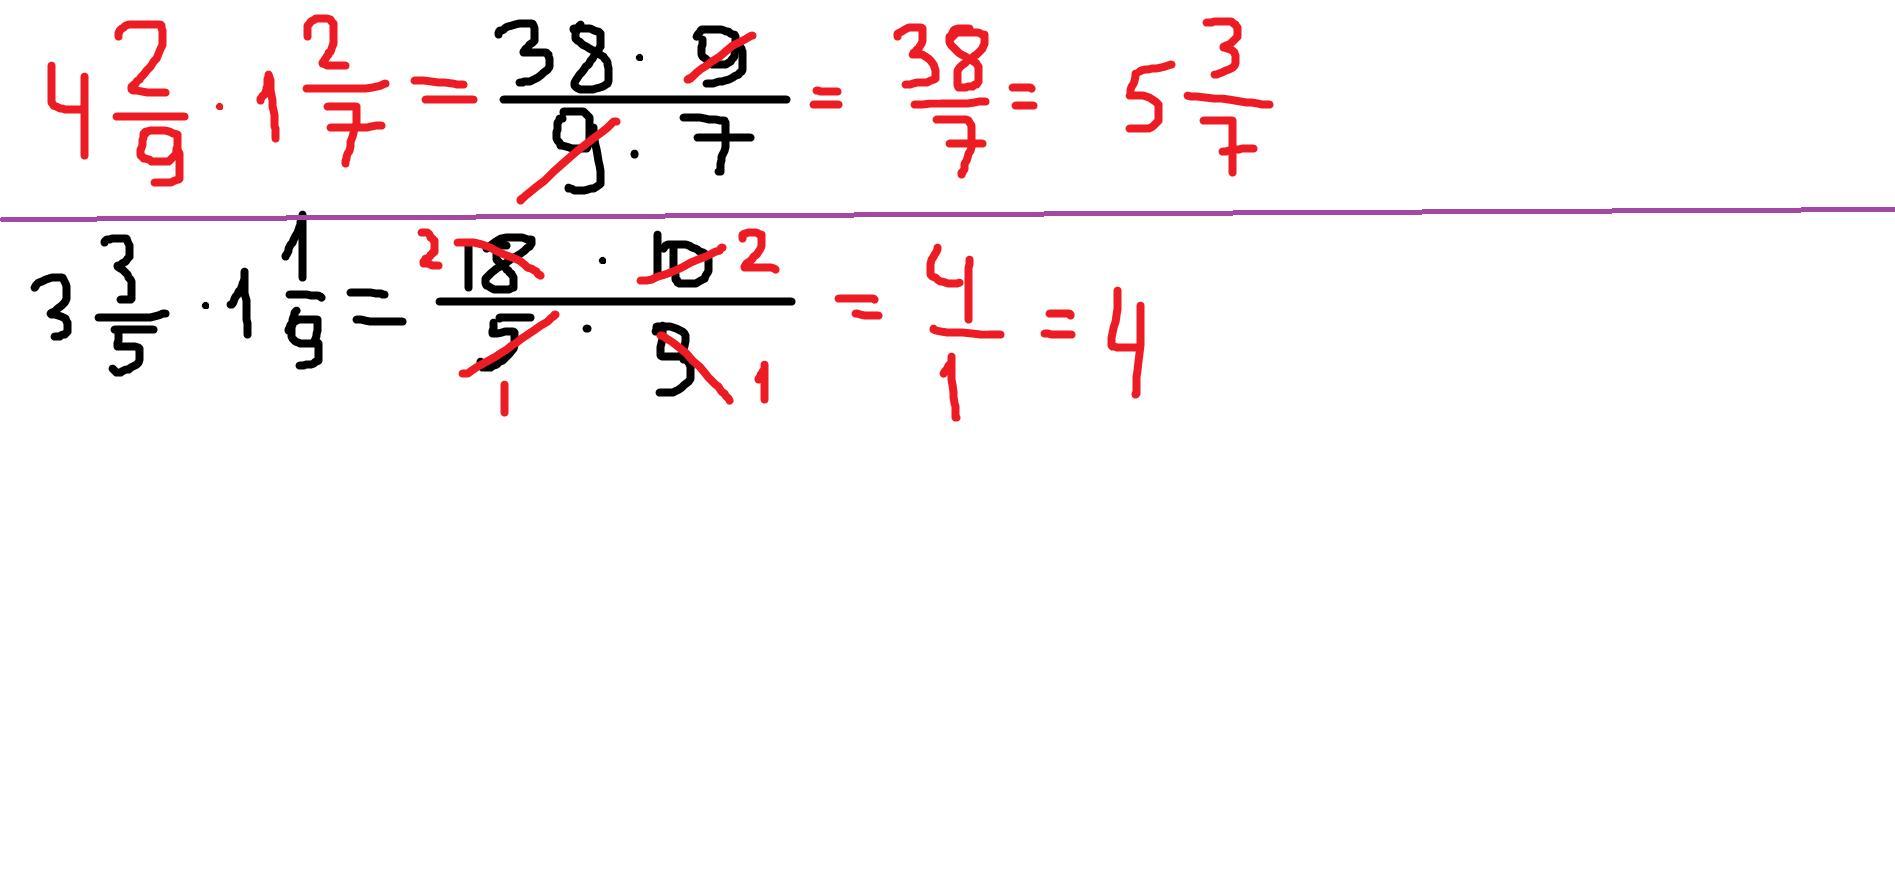 4 2/9 · 1 2/7 = 38 · 9 / 9 · 7 = 38/7 = 5 3/7
3 3/5 · 1 1/9 = 2 18 · 10 2 / 5 1 · 9 1 = 4/1 = 4